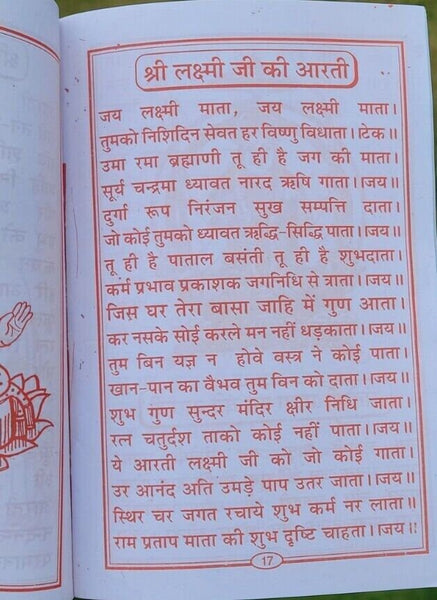 श्री लक्ष्मी जी की आरती
जय लक्ष्मी माता, जय लक्ष्मी माता।
तुमको निशिदिन सेवत हर विष्णु विधाता।।टेक॥
उमा रमा ब्रह्माणी तू ही है जग की माता।
सूर्य चन्द्रमा ध्यावत नारद ऋषि गाता।।जय॥
दुर्गा रूप निरंजन सुख सम्पत्ति दाता।
जो कोई तुमको ध्यावत ऋद्धि-सिद्धि पाता।।जय॥
तू ही है पाताल बसंती तू ही है शुभदाता।
कर्म प्रभाव प्रकाशक जगनिधि से त्राता।।जय॥
जिस घर तेरा बासा जाहि में गुण आता।
कर नसके सोई करले मन नहीं धड़काता।।जय॥
तुम बिन यज्ञ न होवे वस्त्र ने कोई पाता।
खान-पान का वैभव तुम विन को दाता।।जय॥
शुभ गुण सुन्दर मंदिर क्षीर निधि जाता।
रत्न चतुर्दश ताको कोई नहीं पाता।।जय॥
ये आरती लक्ष्मी जी को जो कोई गाता।
उर आनंद अति उमड़े पाप उतर जाता।।जय॥
स्थिर चर जगत रचाये शुभ कर्म नर लाता।
राम प्रताप माता की शुभ दृष्टि चाहता।।जय॥
17